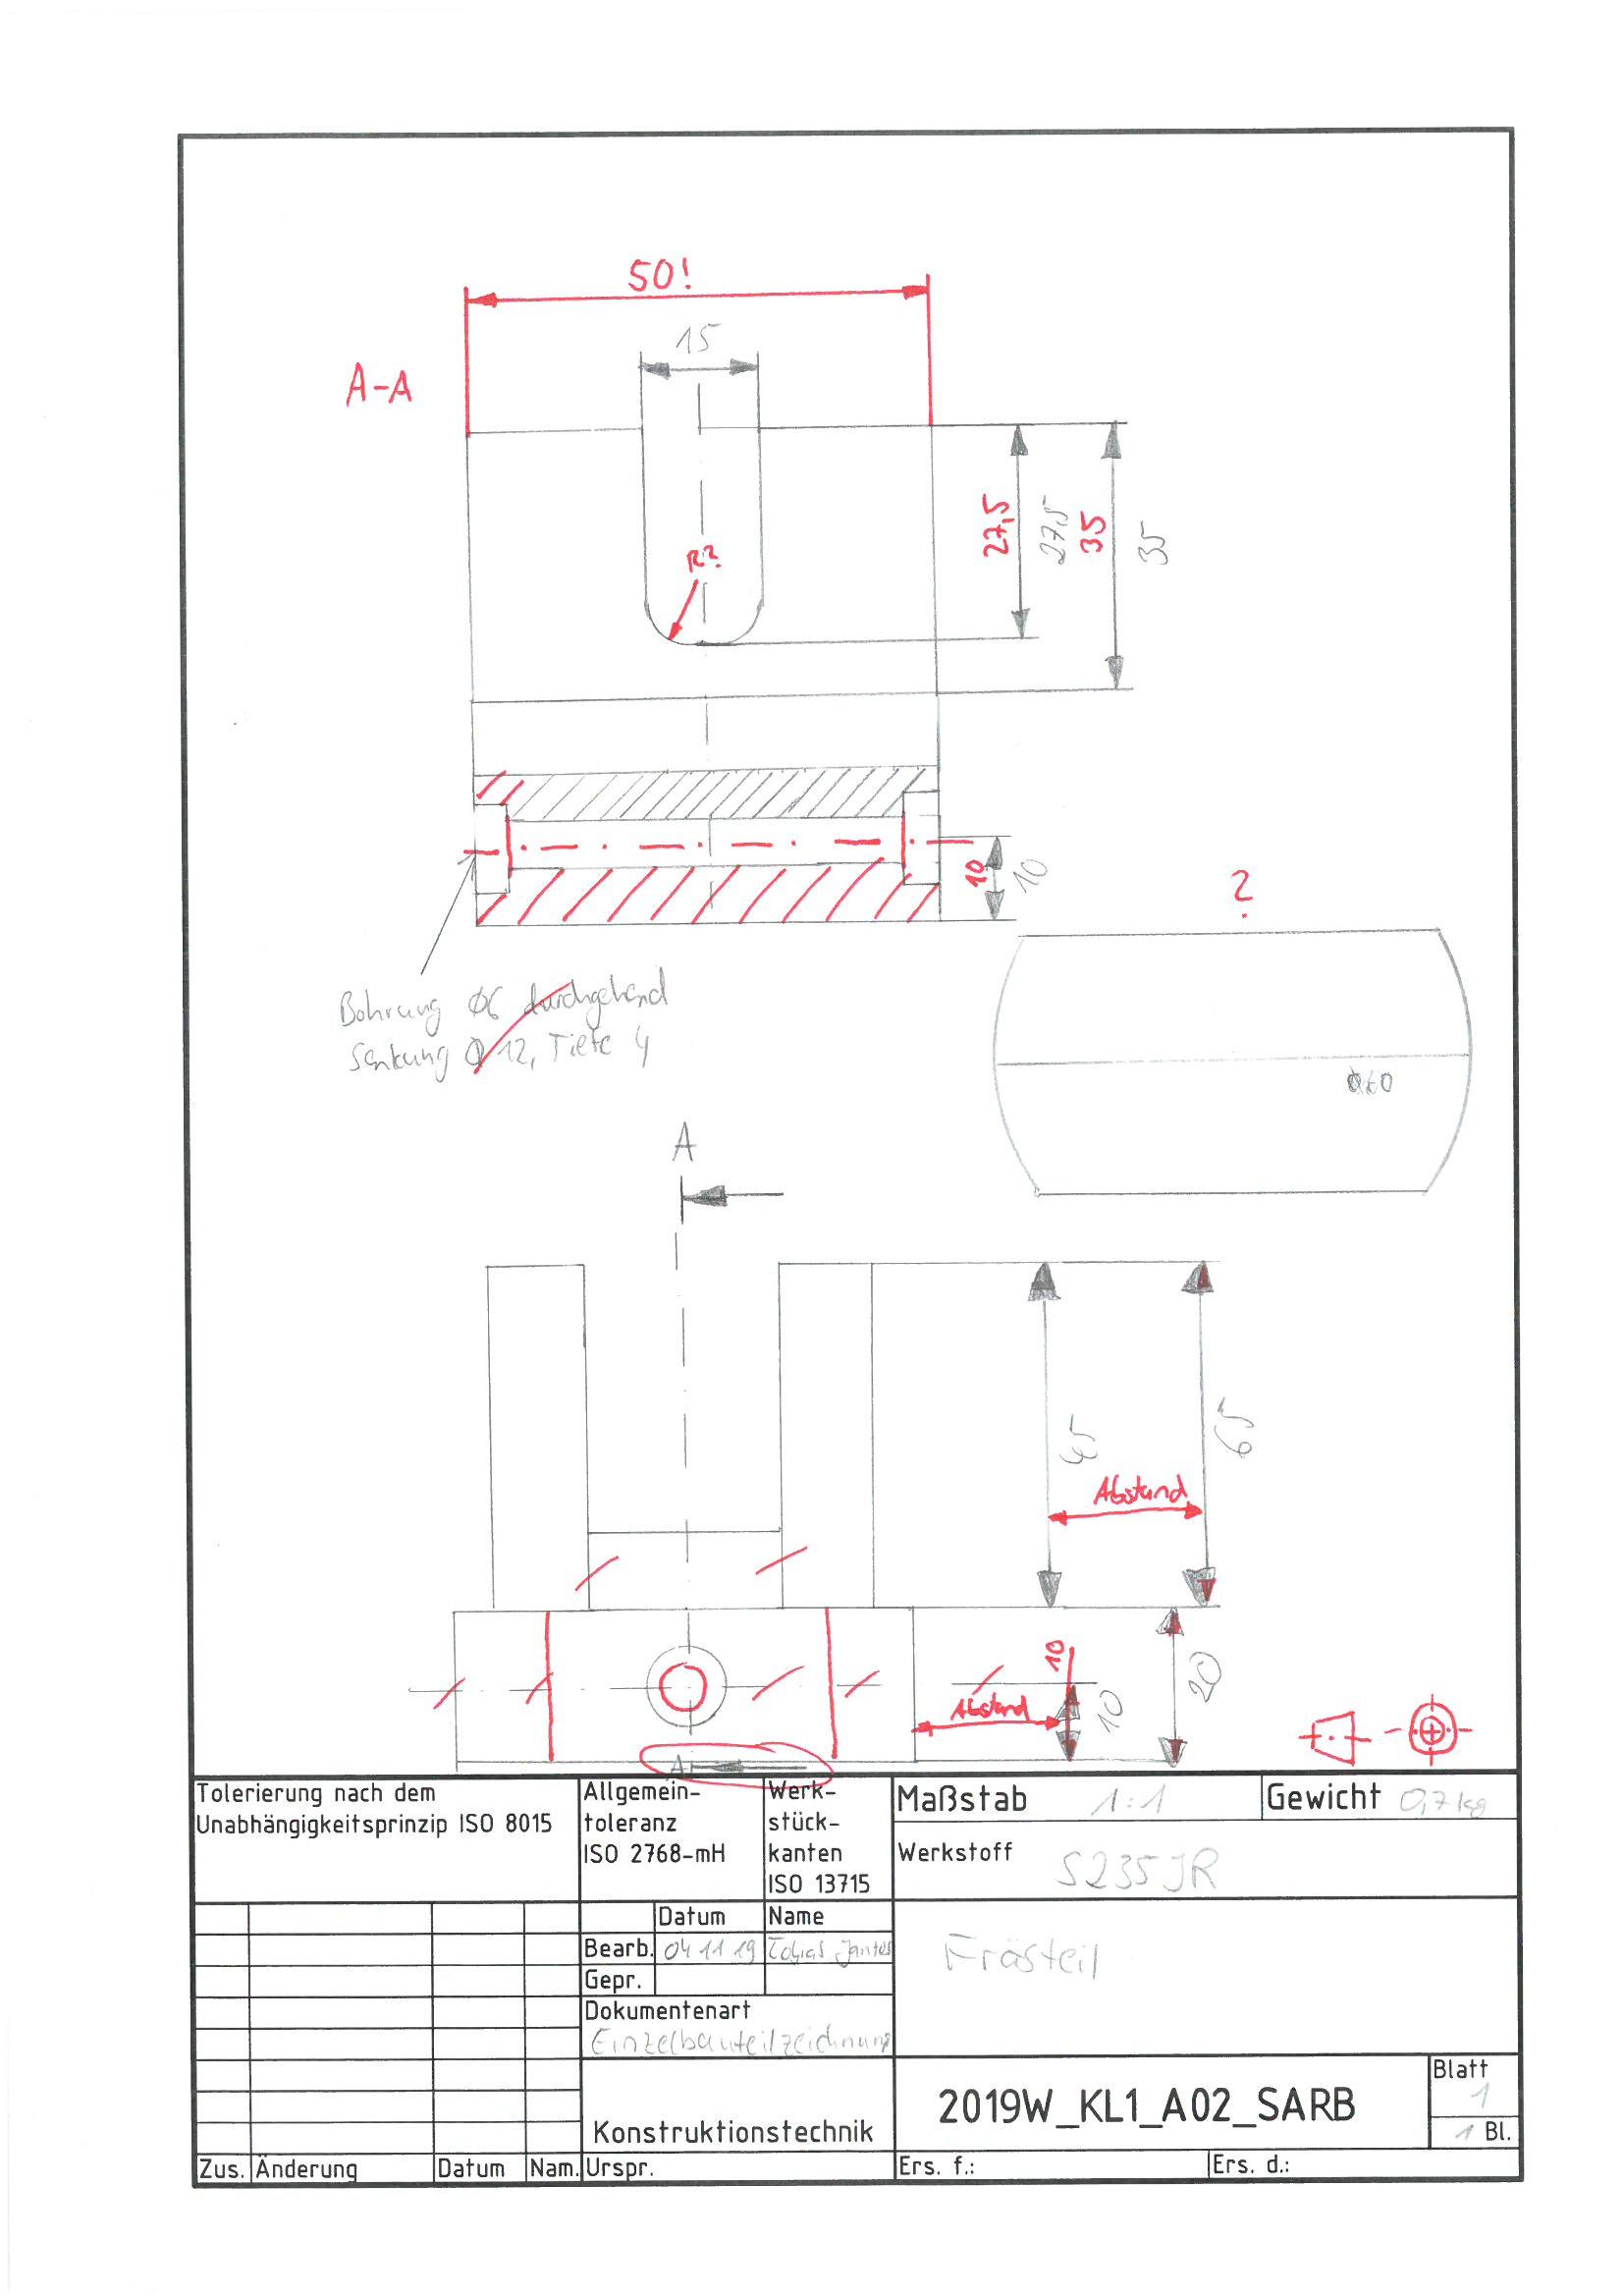 50!
15
A-A
R?
27,5
27,5
35
35
10
10
?
Bohrung Ø6 durchgehend
Senkung Ø 12, Tiefe 4
Ø60
A
65
Abstand
10
Abstand
10
20
A
Tolerierung nach dem
Unabhängigkeitsprinzip ISO 8015
Allgemein-
toleranz
ISO 2768-mH
Werk-
stück-
kanten
ISO 13715
Maßstab 1:1
Gewicht 0,7kg
Werkstoff S235JR
Datum Name
Bearb. 04 11 19 Tobias
Gepr.
Frästeil
Dokumentenart
Einzelbauteilzeichnung
Konstruktionstechnik
2019W_KL1_A02_SARB
Blatt
1
1 Bl.
Zus. Änderung Datum Nam. Urspr. Ers. f.: Ers. d.: